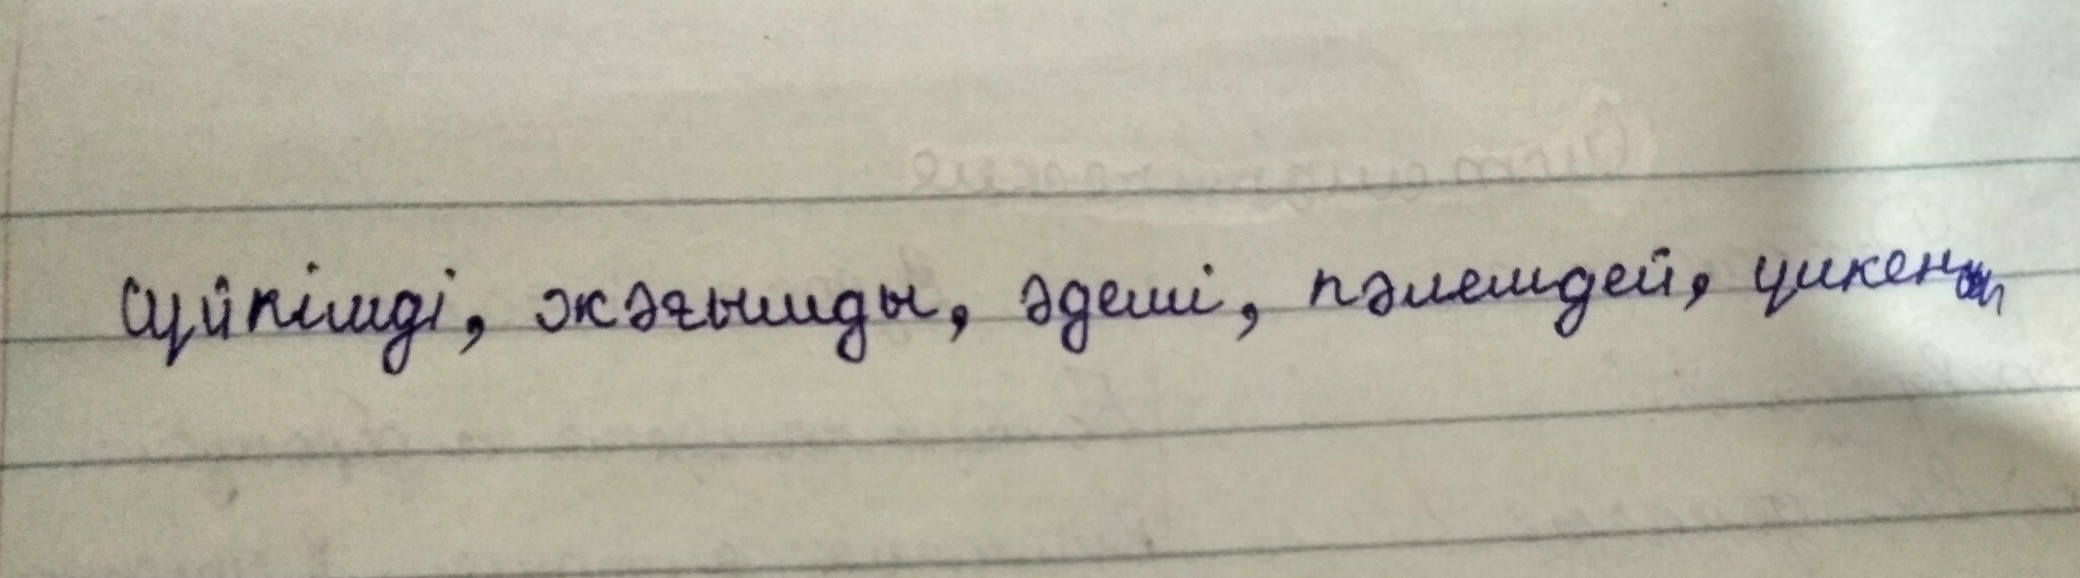 сүйкімді, жағымды, әдеші, пәлемдей, үлкен